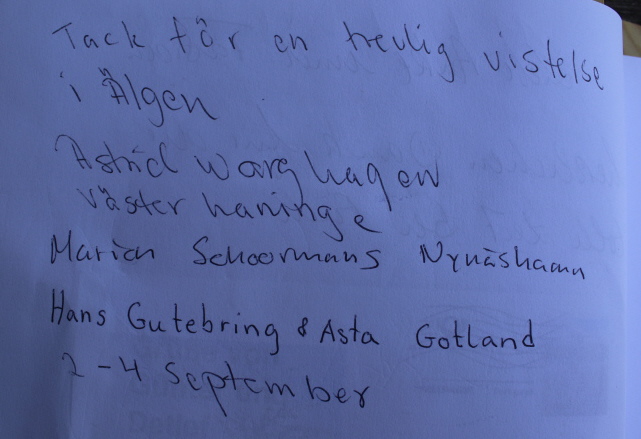 Tack för en trevlig vistelse
i Älgen
Astrid Warghagen
Västerhaninge
Marion Schoormans Nynäshamn
Hans Gutebring & Asta Gotland
2-4 September